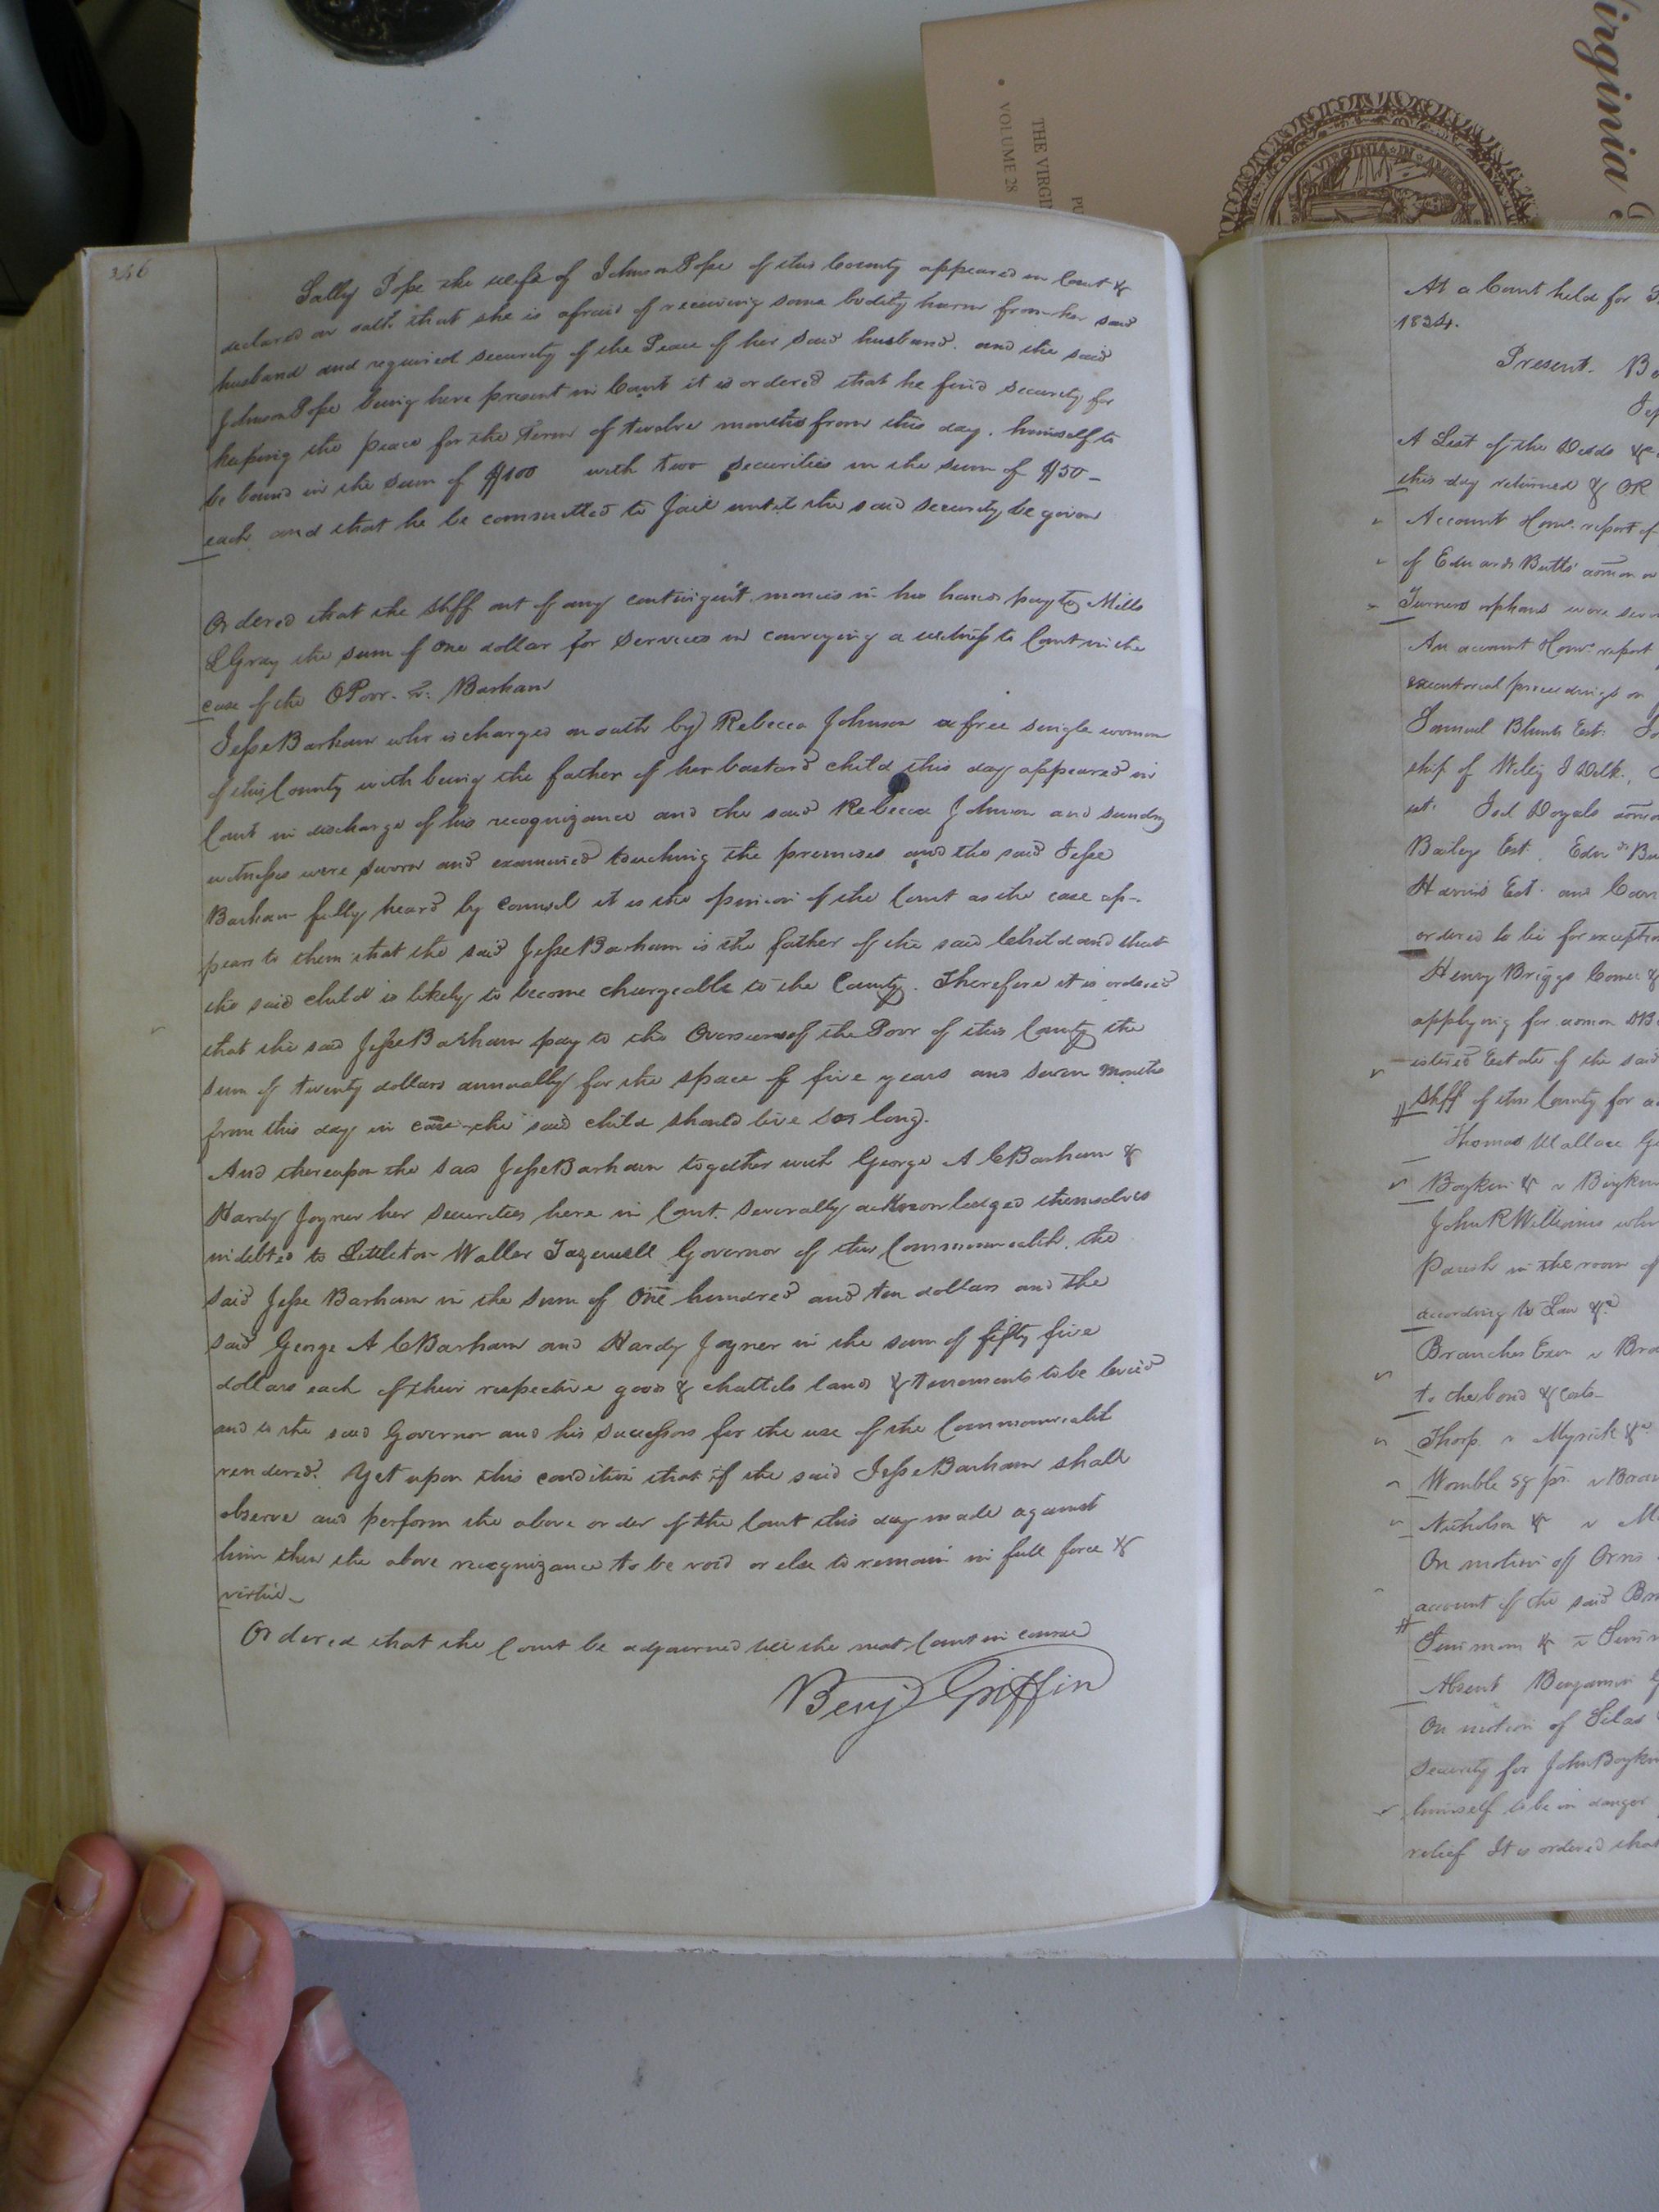 346
Sally Pope the wife of Johnson Pope of this County appeared in Court &
declared on oath that she is afraid of receiving some bodily harm from her said
husband and required security of the Peace of her said husband. and the said
Johnson Pope being here present in Court it is ordered that he find security for
keeping the peace for the Term of twelve months from this day. himself to
be bound in the sum of $100 with two securities in the sum of $50-
each and that he be committed to Jail until the said security be given
Ordered that the Shff out of any contingent monies in his hands pay to Mills
L Gray the sum of one dollar for services in conveying a witness to Court in the
case of the OPoor. v. Barham
Jesse Barham who is charged on oath by Rebecca Johnson a free single woman
of this County with being the father of her bastard child this day appeared in
Court in discharge of his recognizance and the said Rebecca Johnson and sundry
witnesses were sworn and examined touching the premises and the said Jesse
Barham fully heard by Counsel it is the opinion of the Court as the case ap-
pears to them that the said Jesse Barham is the father of the said Child and that
the said child is likely to become chargeable to the County. Therefore it is ordered
that the said Jesse Barham pay to the Overseers of the Poor of this County the
sum of twenty dollars annually for the space of five years and seven months
from this day in case the said child should live so long.
And thereupon the said Jesse Barham together with George A C Barham &
Hardy Joyner her securities here in Court. severally acknowledged themselves
indebted to Littleton Waller Tazewell Governor of this Commonwealth. the
said Jesse Barham in the sum of One hundred and ten dollars and the
said George A C Barham and Hardy Joyner in the sum of fifty five
dollars each of their respective goods & chattels lands & tenements to be levied
and to the said Governor and his successors for the use of the Commonwealth
rendered. Yet upon this condition that if the said Jesse Barham shall
observe and perform the above order of the Court this day made against
him then the above recognizance to be void or else to remain in full force &
virtue-
Ordered that the Court be adjourned till the next Court in course
Benj Griffin
At a Court held for
1834.
Present. B
A List of the Deeds &c
this day returned & OR
Account Howr. report of
of Edwards Butts'
Turners orphans were
An account Howr. report
executorial proceedings on
Samuel Blunts Est.
ship of Wiley J Delk.
Joel Doyals
Baileys Est. Edwds Bu
Harris Est. and Cour
ordered to lie for exception
Henry Briggs Comr. &
applying for
istered Estate of the said
Shff of this County for
Thomas Wallace G
Boykin & v Boykin
John R Williams who
Parish in the room of
according to Law &c
Branches Exor v Bra
to the bond & costs-
Thorp v Myrick &c
Womble
Nicholson & v M
On motion of Orris
account of the said Br
Simmons & v Simm
Absent Benjamin G
On motion of Silas
Security for John Boykin
himself to be in danger
relief It is ordered that
Virginia
THE VIRGI
VOLUME 28
PU
VIRGINIA IN AMER